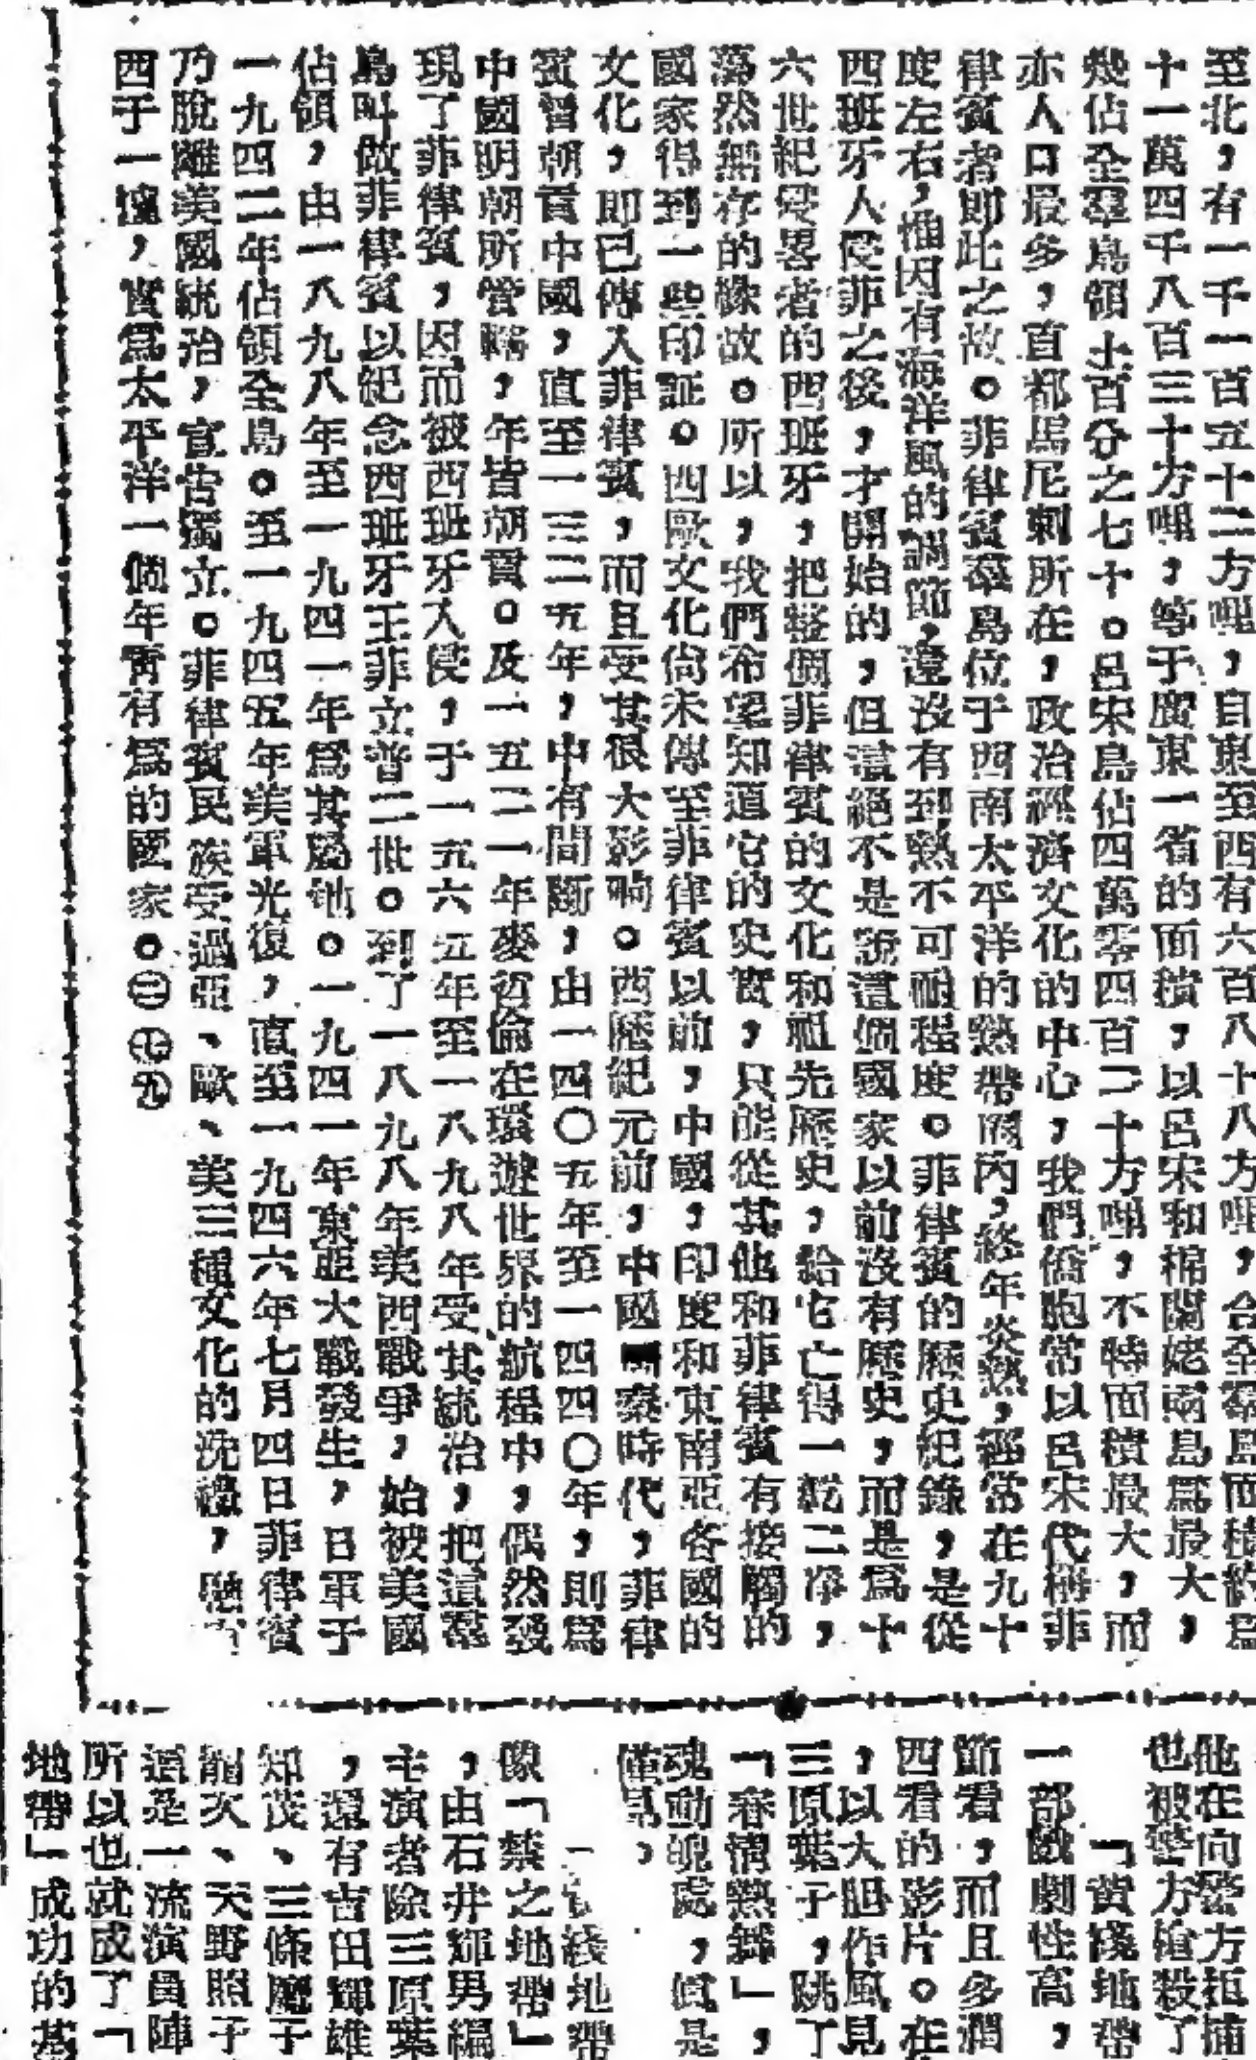 至北，有一千一百五十二方哩，自東至西有六百八十八方哩，合全羣島面積約爲
十一萬四千八百三十方哩，等于廣東一省的面積，以呂宋和棉蘭姥兩島爲最大，
幾佔全羣島領土百分之七十。呂宋島佔四萬零四百二十方哩，不特面積最大，而
亦人口最多，首都馬尼剌所在，政治經濟文化的中心，我們僑胞常以呂宋代稱菲
律賓者即此之故。菲律賓羣島位于西南太平洋的熱帶圈內，終年炎熱，經常在九十
度左右，惟因有海洋風的調節，還沒有到熱不可耐程度。菲律賓的歷史紀錄，是從
西班牙人侵菲之後，才開始的，但這絕不是說這個國家以前沒有歷史，而是爲十
六世紀侵畧者的西班牙，把整個菲律賓的文化和祖先歷史，給它亡得一乾二淨，
蕩然無存的緣故。所以，我們希望知道它的史實，只能從其他和菲律賓有接觸的
國家得到一些印証。西歐文化尙未傳至菲律賓以前，中國，印度和東南亞各國的
文化，即已傳入菲律賓，而且受其很大影响。西歷紀元前，中國秦時代，菲律
賓曾朝貢中國，直至一三二五年，中有間斷，由一四〇五年至一四四〇年，則爲
中國明朝所管轄，年皆朝貢。及一五二一年麥哲倫在環遊世界的航程中，偶然發
現了菲律賓，因而被西班牙入侵，于一五六五年至一八九八年受其統治，把這羣
島叫做菲律賓以紀念西班牙王菲立普二世。到了一八九八年美西戰爭，始被美國
佔領，由一八九八年至一九四一年爲其屬地。一九四一年東亞大戰發生，日軍于
一九四二年佔領全島。至一九四五年美軍光復，直至一九四六年七月四日菲律賓
乃脫離美國統治，宣告獨立。菲律賓民族受過亞、歐、美三種文化的洗禮，融
西于一爐，實爲太平洋一個年靑有爲的國家。㊁㊆㊈
他在向警方拒捕
也被警方槍殺了
「黃綫地帶
一部戲劇性高，
節看，而且多濶
四看的影片。在
，以大胆作風見
三原葉子，跳了
「春情熱舞」，
魂動魄處，眞是
僅見、
綫地帶
像「禁之地帶」
，由石井輝男編
主演者除三原葉
，還有吉田輝雄
知茂、三條魔子
龍次、天野照子
這是一流演員陣
所以也就成了「
地帶」成功的基